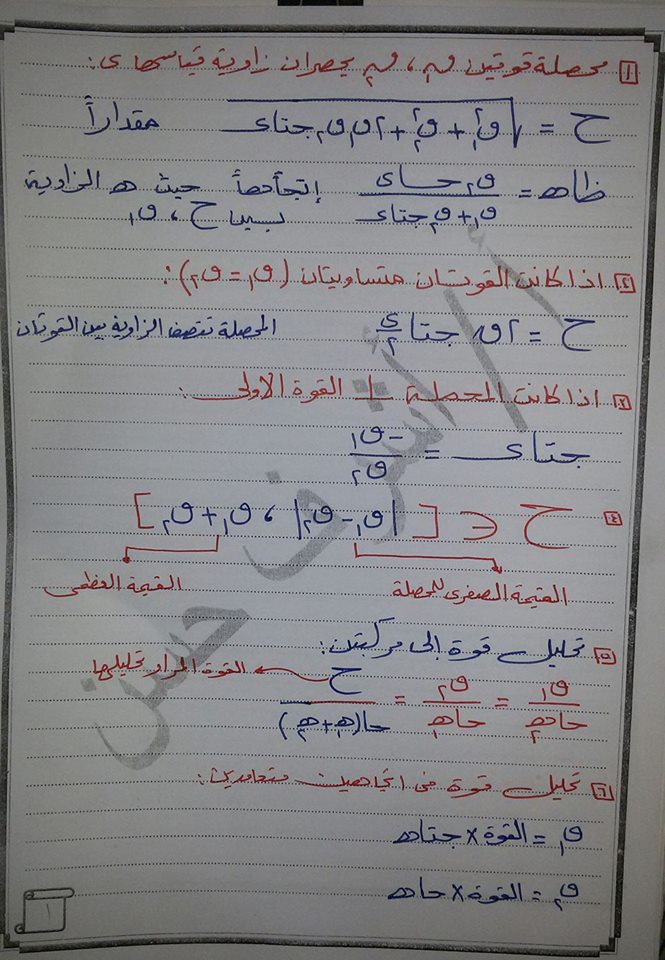 ١ محصلة قوتين ق١ ، ق٢ يحصران زاوية قياسها ى :
ح = √(ق١² + ق٢² + ٢ق١ق٢ جتاى) مقداراً
ظاهـ = ق٢ حاى / (ق١ + ق٢ جتاى) إتجأهأ حيث هـ الزاوية
بين ح ، ق١
٢ اذا كانت القوتان متساويتان (ق١ = ق٢) :
ح = ٢ق جتا ى/٢ المحصلة تنصف الزاوية بين القوتان
٣ اذا كانت المحصلة ⊥ القوة الاولى :
جتاى = -ق١ / ق٢
٤ ح ∈ [ |ق١ - ق٢| ، ق١ + ق٢ ]
القيمة الصغرى للمحصلة القيمة العظمى
٥ تحليل قوة إلى مركبتين :
القوة المراد تحليلها
ق١ / حاهـ٢ = ق٢ / حاهـ١ = ح / حا(هـ١ + هـ٢)
٦ تحليل قوة فى اتجاهين متعامدين :
ق١ = القوة × جتاهـ
ق٢ = القوة × حاهـ
١
أ / أشرف حسن